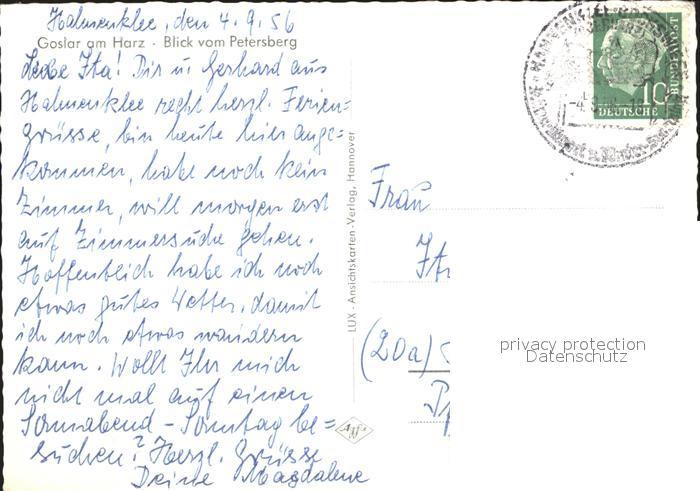 Hahnenklee, den 4.9.56
Goslar am Harz - Blick vom Petersberg
Liebe Ita! Dir u. Gerhard aus
Hahnenklee recht herzl. Ferien=
grüsse, bin heute hier ange=
kommen, habe noch kein
Zimmer, will morgen erst
auf Zimmersuche gehen.
Hoffentlich habe ich noch
etwas gutes Wetter, damit
ich noch etwas wandern
kann. Wollt Ihr mich
nicht mal auf einen
Sonnabend - Sonntag be=
suchen? Herzl. Grüsse
Deine Magdalene
LUX - Ansichtskarten-Verlag, Hannover
Agfa
HAHNENKLEE
10
DEUTSCHE
BUNDESPOST
Frau
Ita
(20a)
privacy protection
Datenschutz